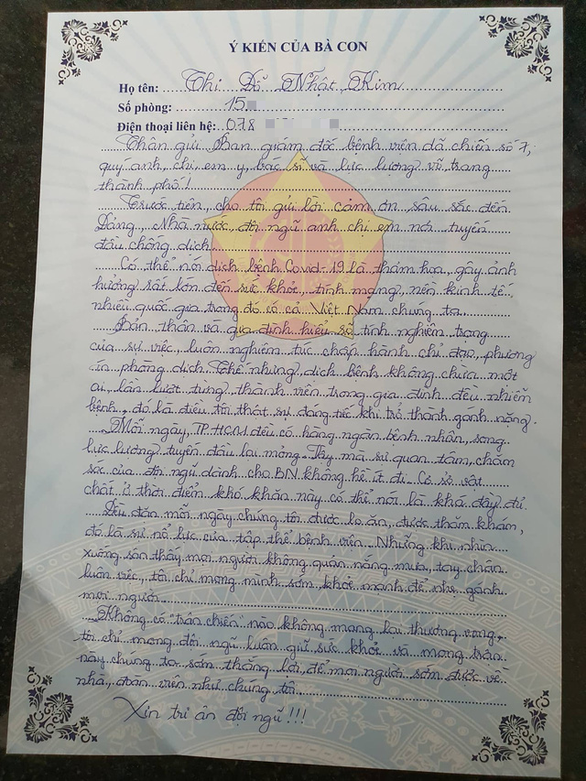 Ý KIẾN CỦA BÀ CON
Họ tên: Thi Đỗ Nhật Kim
Số phòng: 15
Điện thoại liên hệ: 078
Thân gửi Ban giám đốc bệnh viện dã chiến số 7,
quý anh, chị, em y, bác sĩ và lực lượng vũ trang
thành phố!
Trước tiên, cho tôi gửi lời cảm ơn sâu sắc đến
Đảng, Nhà nước, đội ngũ anh chị em nơi tuyến
đầu chống dịch.
Có thể nói dịch bệnh Covid-19 là thảm họa, gây ảnh
hưởng rất lớn đến sức khỏe, tính mạng, nền kinh tế,
nhiều quốc gia trong đó có cả Việt Nam chúng ta.
Bản thân và gia đình hiểu sự tính nghiêm trọng
của sự việc, luôn nghiêm túc chấp hành chỉ đạo, phương
án phòng dịch. Thế nhưng, dịch bệnh không chừa một
ai, lần lượt từng thành viên trong gia đình đều nhiễm
bệnh, đó là điều tôi thật sự đáng tiếc khi trở thành gánh nặng.
Mỗi ngày, TP.HCM đều có hàng ngàn bệnh nhân, song
lực lượng tuyến đầu lại mỏng. Thy mà sự quan tâm, chăm
sóc của đội ngũ dành cho BN không hề ít đi. Cơ sở vật
chất ở thời điểm khó khăn này có thể nói là khá đầy đủ.
Đều đặn mỗi ngày chúng tôi được lo ăn, được thăm khám,
đó là sự nỗ lực của tập thể bệnh viện. Những khi nhìn
xuống sân thấy mọi người không quản nắng mưa, tay chân
luôn việc, tôi chỉ mong mình sớm khỏe mạnh để nhẹ gánh
mọi người.
Không có "trận chiến" nào không mang lại thương vong,
tôi chỉ mong đội ngũ luôn giữ sức khỏe và mong trận
này chúng ta sớm thắng lợi, để mọi người sớm được về
nhà, đoàn viên như chúng tôi.
Xin tri ân đội ngũ!!!